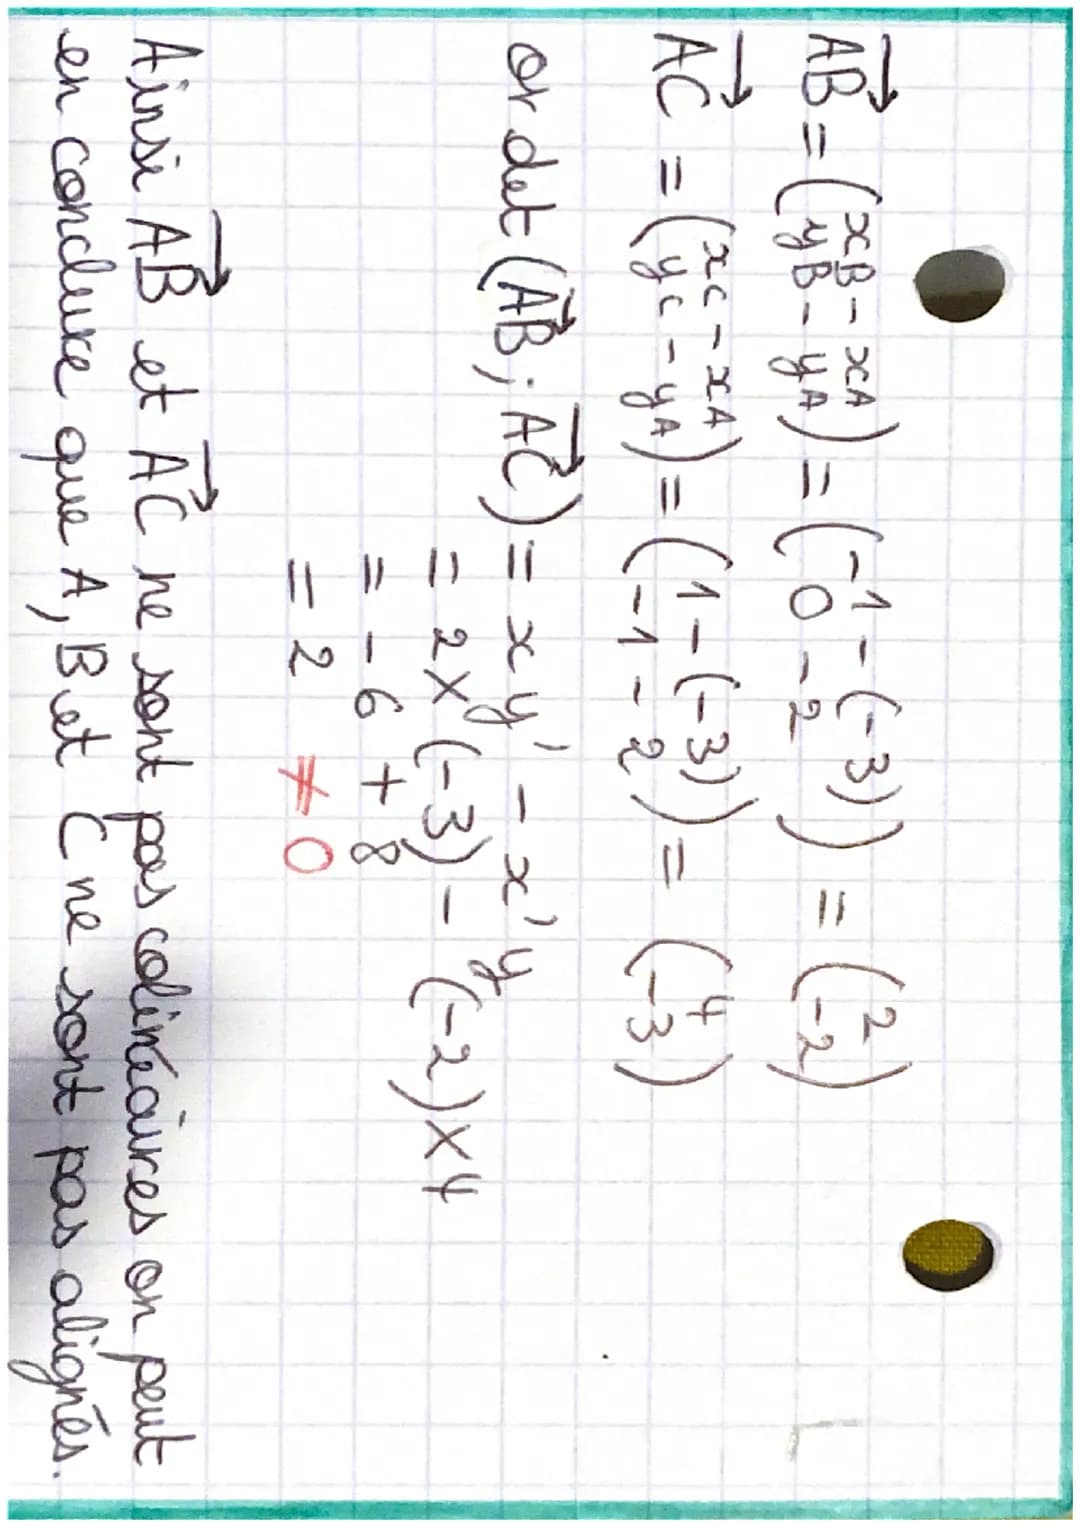 AB→ = (xB - xA / yB - yA) = (-1 - (-3) / 0 - 2) = (2 / -2)
AC→ = (xC - xA / yC - yA) = (1 - (-3) / -1 - 2) = (4 / -3)
or det (AB→ ; AC→) = xy' - x'y
= 2 × (-3) - (-2) × 4
= -6 + 8
= 2 ≠ 0
Ainsi AB→ et AC→ ne sont pas colinéaires on peut
en conclure que A, B et C ne sont pas alignés.